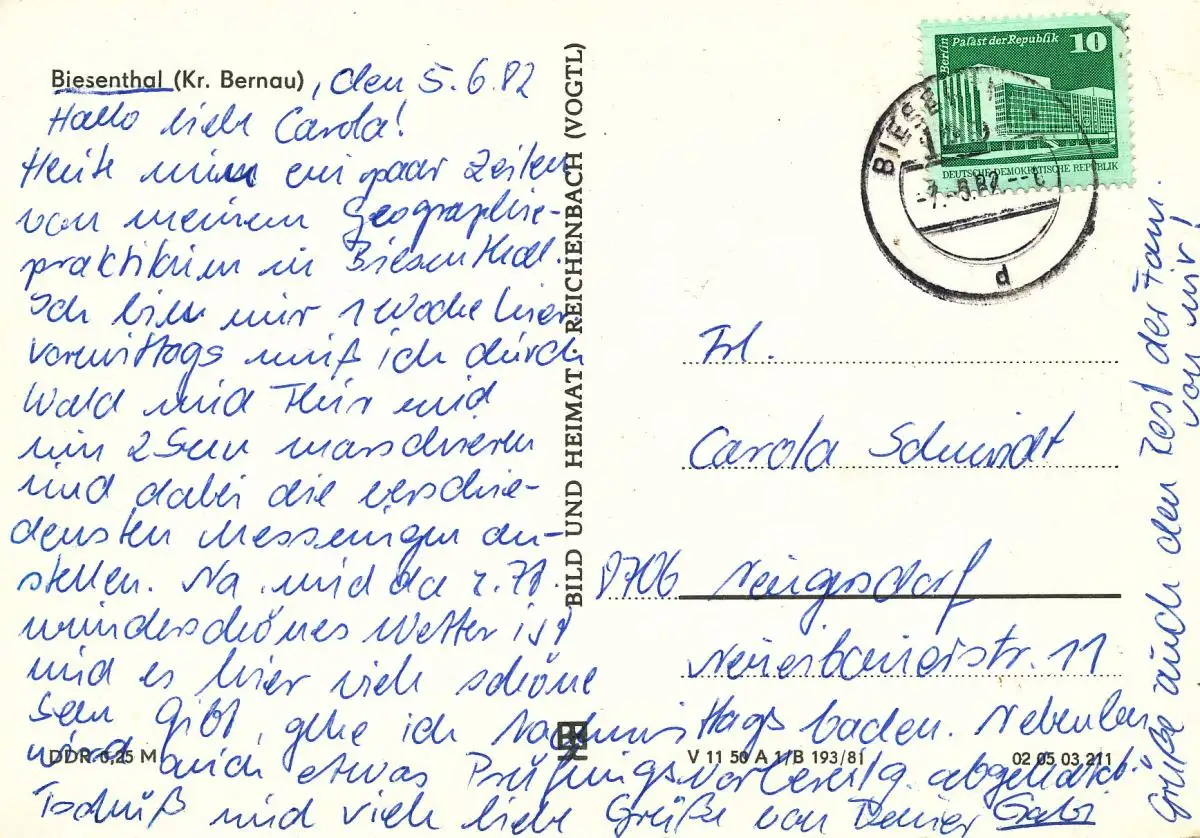 Biesenthal (Kr. Bernau), den 5.6.82
Hallo liebe Carola!
Heute nun ein paar Zeilen
von meinem Geographie-
praktikum in Biesenthal.
Ich bin nur 1 Woche hier
vormittags muß ich durch
Wald und Flur und
um 2 Seen marschieren
und dabei die verschie-
densten Messungen an-
stellen. Na und da z.Zt
wunderschönes Wetter ist
und es hier viele schöne
Seen gibt, gehe ich Nachmittags baden. Nebenbei
wird auch etwas Prüfungsvorbereitg. abgehakt.
Tschüß und viele liebe Grüße von Deiner Gabi
Grüße auch den Rest der Fam.
von mir!
BILD UND HEIMAT REICHENBACH (VOGTL)
Berlin Palast der Republik 10
DEUTSCHE DEMOKRATISCHE REPUBLIK
d
Frl.
Carola Schmidt
8706 Neugersdorf
11
DDR 0,25 M
V 11 50 A 1/B 193/81
02 05 03 211